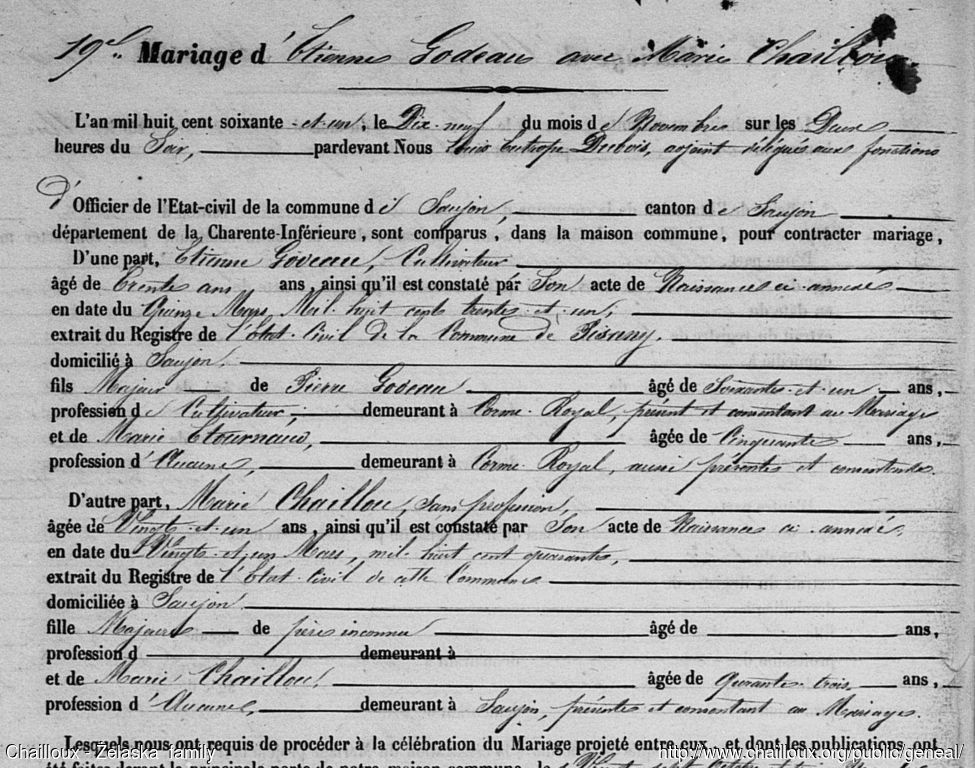 19e Mariage d'Etienne Godeau avec Marie Chaillou.
L'an mil huit cent soixante et un, le Dix-neuf du mois de Novembre sur les Deux
heures du Soir, pardevant Nous Eutrope Dubois, adjoint délégué aux fonctions
d'Officier de l'Etat-civil de la commune de Saujon, canton de Saujon
département de la Charente-Inférieure, sont comparus, dans la maison commune, pour contracter mariage,
D'une part, Etienne Godeau, Cultivateur
âgé de trente ans ans, ainsi qu'il est constaté par Son acte de Naissance ci annexé
en date du Quinze Mars Mil huit cent trente et un,
extrait du Registre de l'Etat-Civil de la Commune de Pisany.
domicilié à Saujon.
fils Majeur de Pierre Godeau âgé de Soixante-et-un ans,
profession de Cultivateur, demeurant à Corme-Royal, présent et consentant au Mariage
et de Marie Etournaud, âgée de Cinquante ans,
profession d'Aucune, demeurant à Corme-Royal, aussi présente et consentante.
D'autre part, Marie Chaillou, Sans profession,
âgée de Vingt-et-un ans, ainsi qu'il est constaté par Son acte de Naissance ci-annexé,
en date du Vingt-et-un Mars, mil huit cent quarante,
extrait du Registre de l'Etat-Civil de cette Commune
domiciliée à Saujon.
fille Majeure de père inconnu âgé de ans,
profession d demeurant à
et de Marie Chaillou. âgée de Quarante-trois ans,
profession d'Aucune, demeurant à Saujon, présente et consentant au Mariage.
Lesquels nous ont requis de procéder à la célébration du Mariage projeté entre eux, et dont les publications ont
été faites devant la principale porte de notre maison commune, le
Chailloux - Zelaska family
http://www.chailloux.org/public/geneal/